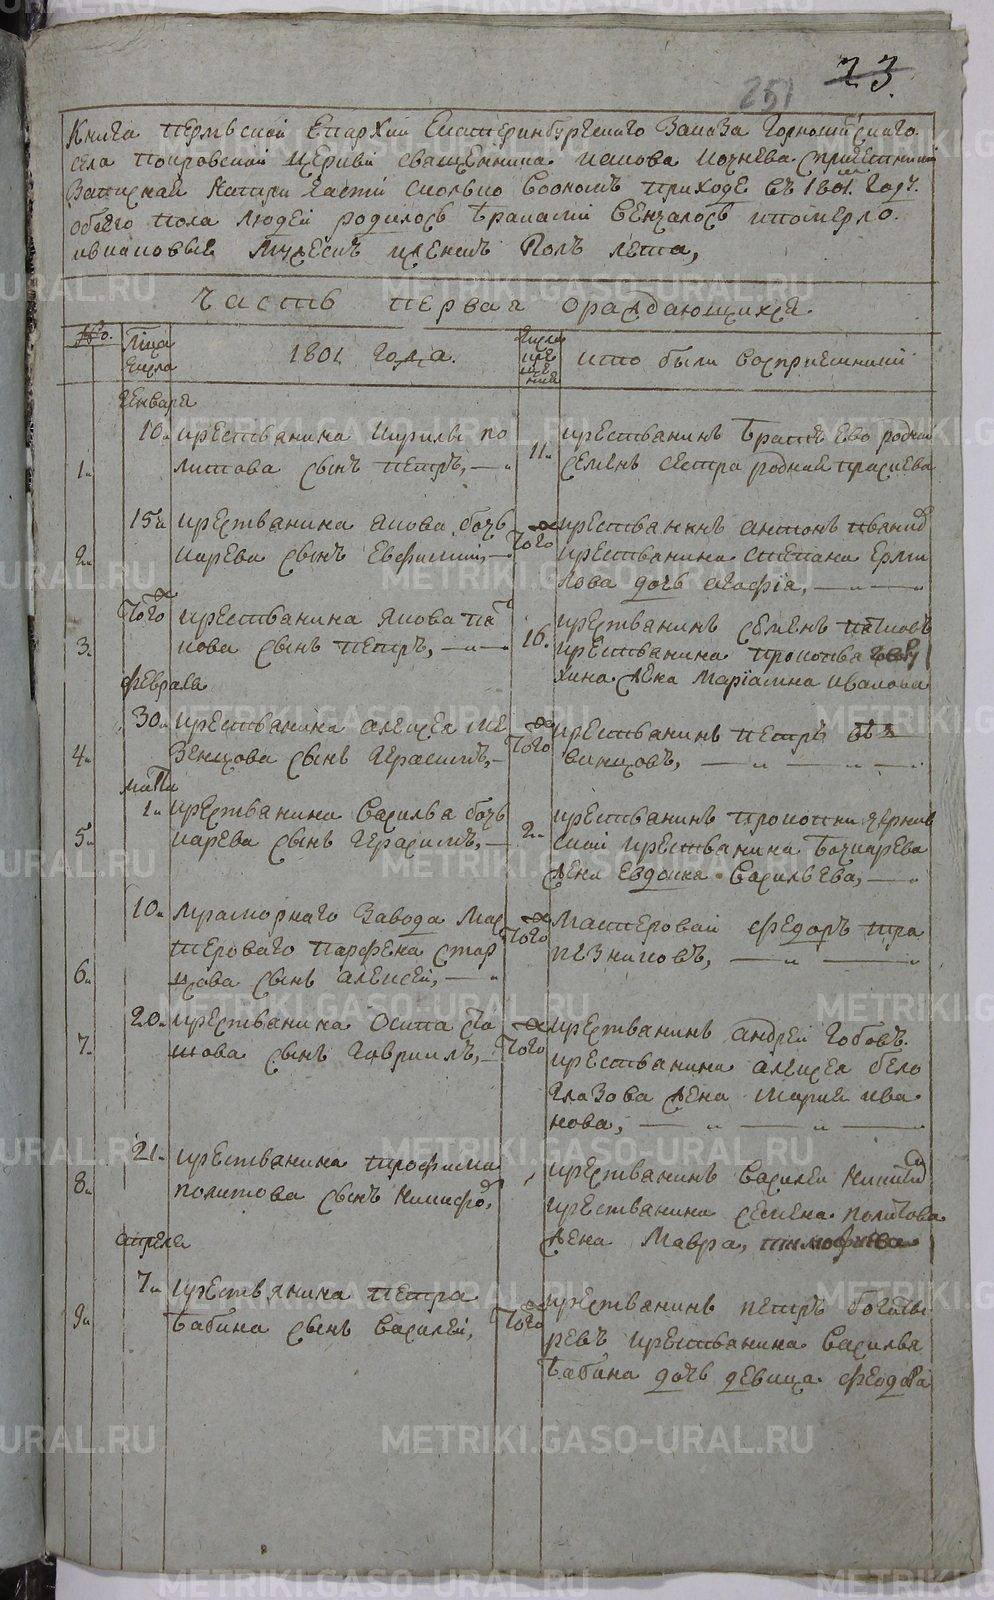 251 23.
Книга пермской Епархии Екатеринбургского Заказа Горнощитского
села покровской церкви священника иакова с причетники
Записная натри части сколько воономъ приходе въ 1801. Году.
обоего пола людей родилось браками венчалось ипомерло.
мужескъ иженскъ Полъ лета,
часть первая ораждающихся.
No. Мца числа 1801. года. числа креще ния кто были восприемники
генваря
1. 10. крестьянина Кирилы по
литова сынъ петръ, 11. крестьянинъ братъ ево родной
семенъ сестра родная
2. 15. крестьянина якова боч
карева сынъ Евфимий, того крестьянинъ антонъ
крестьянина степана Ерми
лова дочь агафїа,
3. того крестьянина якова па
кова сынъ петръ, 16. крестьянинъ семенъ
крестьянина прокопья
хина жена марїамна иванова
февраля
4. 30. крестьянина алексея ме
зенцова сынъ герасимъ, того крестьянинъ петръ
винцовъ,
марта
5. 1. крестьянина василья боч
карева сынъ герасимъ, 2. крестьянинъ прокопий черно
ской крестьянина бочкарева
жена евдокиа васильева,
6. 10. мраморнаго завода мас
терового парфена стар
цова сынъ алексей, того мастеровой федоръ тра
пезниковъ,
7. 20. крестьянина осипа
кова сынъ гавриилъ, того крестьянинъ андрей гобовъ.
крестьянина алексея бело
глазова жена мария ива
нова,
8. 21. крестьянина трофима
политова сынъ никифоръ, крестьянинъ василеи
крестьянина семена политова
жена мавра, тимофиева
апреля
9. 7. крестьянина петра
бабина сынъ василей, того крестьянинъ петръ богаты
ревъ крестьянина василья
бабина дочь девица феодора
METRIKI.GASO-URAL.RU